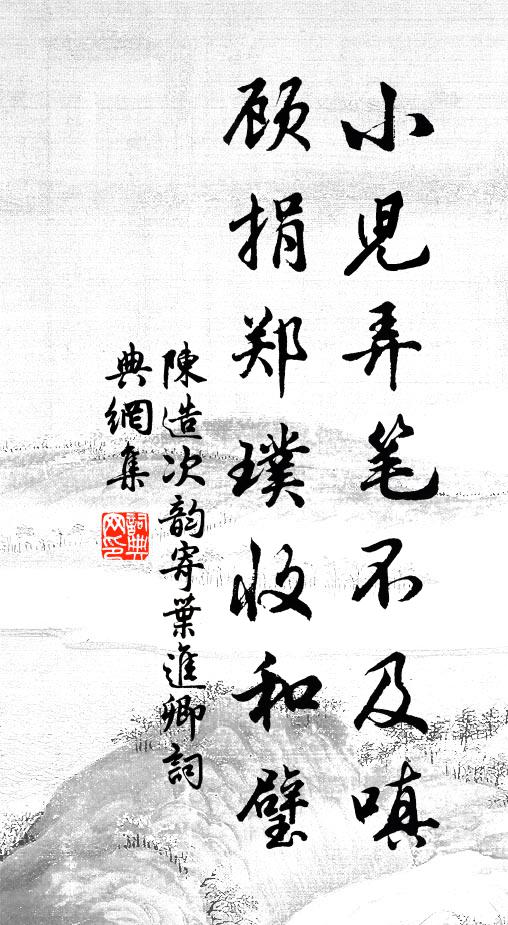 小児弄笔不及嗔
顾捐郑璞收和璧
陳造次韵寄葉進卿詞
典網集
詞典
网印